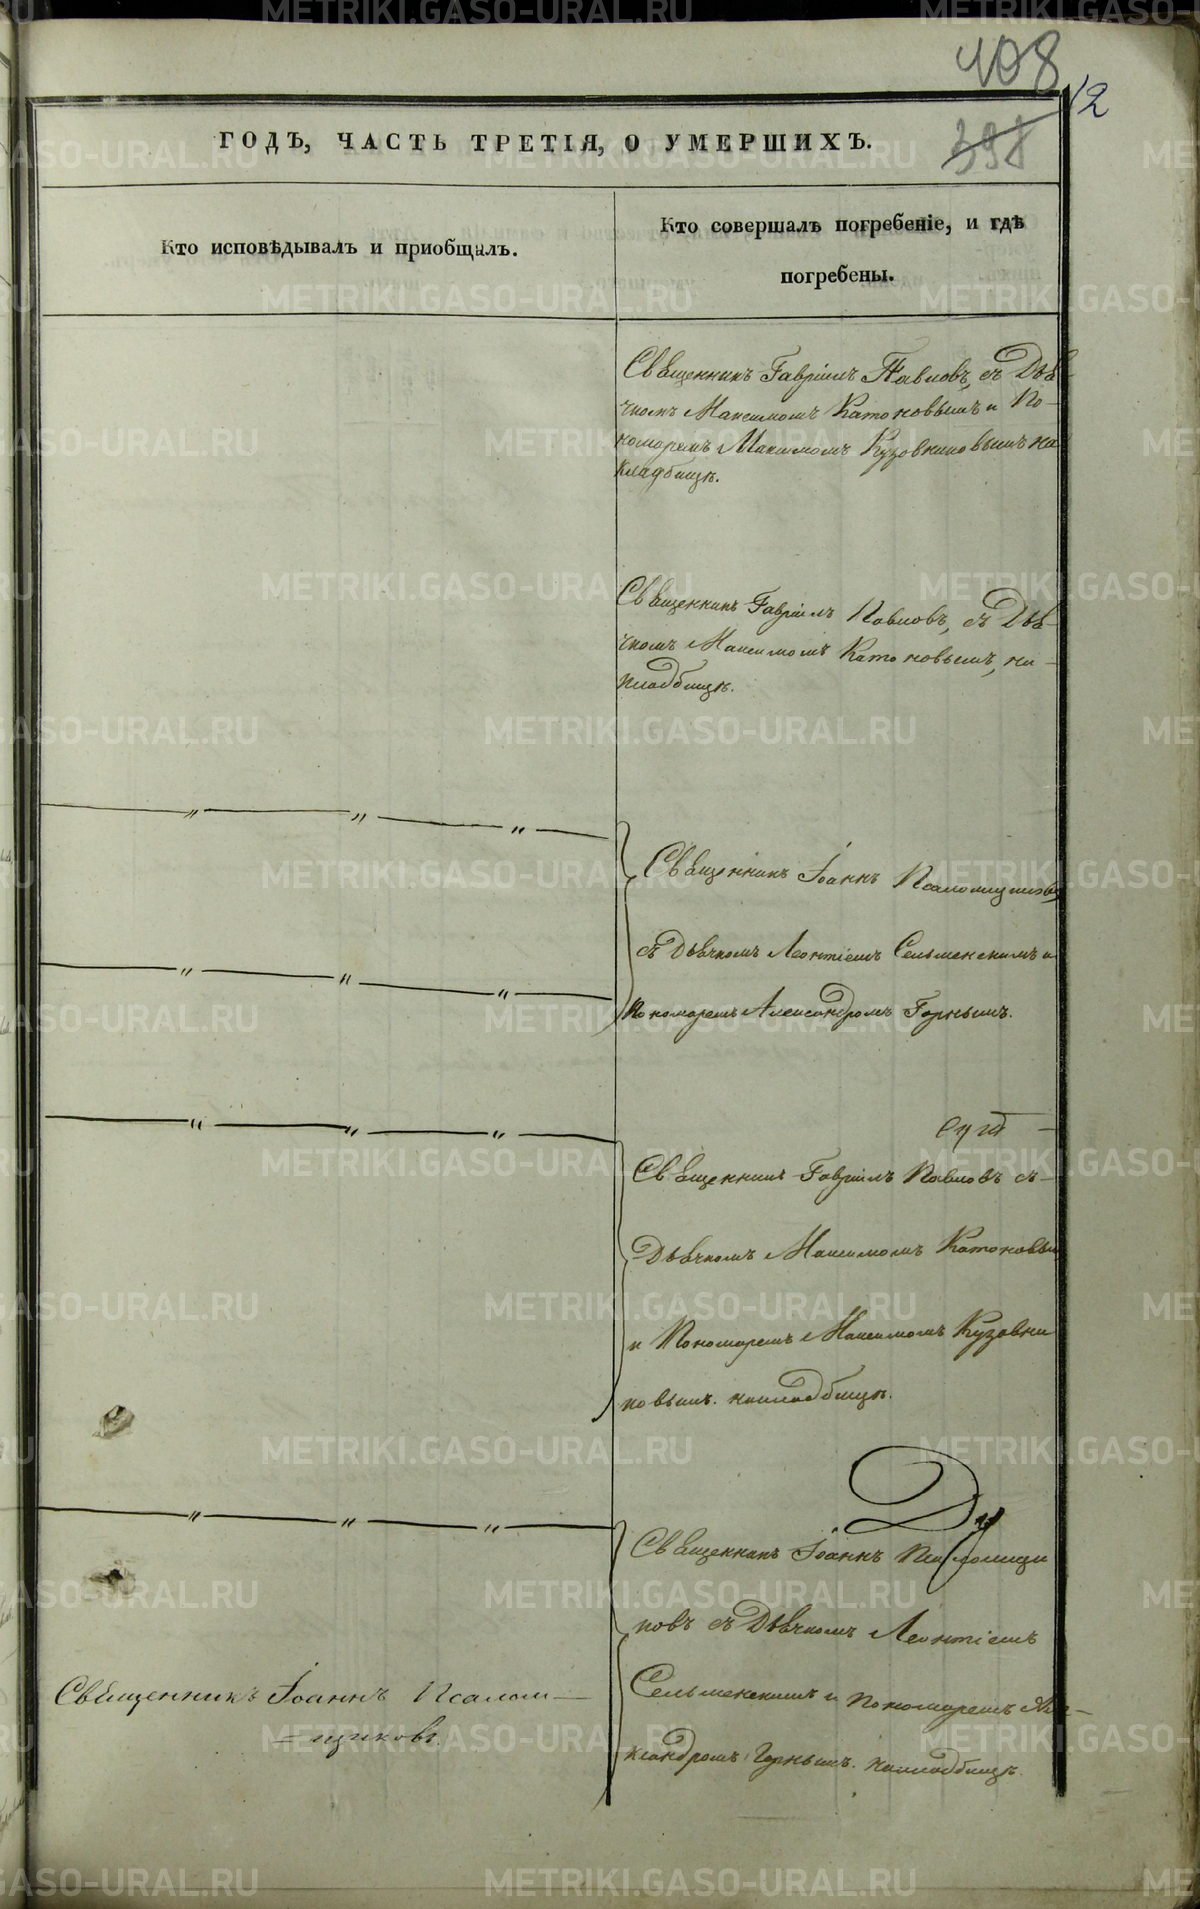 408
12
398
ГОДЪ, ЧАСТЬ ТРЕТІЯ, О УМЕРШИХЪ.
Кто исповѣдывалъ и приобщалъ.
Кто совершалъ погребеніе, и гдѣ
погребены.
Священникъ Гавріилъ Павловъ, съ Дья
чкомъ Максимомъ Катоковымъ и По-
номаремъ Максимомъ Кузовниковымъ на
кладбищѣ.
Священникъ Гавріилъ Павловъ, съ Дья-
чкомъ Максимомъ Катоковымъ, на
кладбищѣ.
Священникъ Іоаннъ Псаломщиковъ
съ Дьячкомъ Леонтіемъ Сельменскимъ и
Пономаремъ Александромъ Горнымъ.
Священникъ Гавріилъ Павловъ съ
Дьячкомъ Максимомъ Катоковы
и Пономаремъ Максимомъ Кузовни
ковымъ. на кладбищѣ.
Священникъ Іоаннъ Псаломщи
ковъ съ Дьячкомъ Леонтіемъ
Священникъ Іоаннъ Псалом-
=щиковъ.
Сельменскимъ и Пономаремъ Але-
ксандромъ Горнымъ. на кладбищѣ.
METRIKI.GASO-URAL.RU